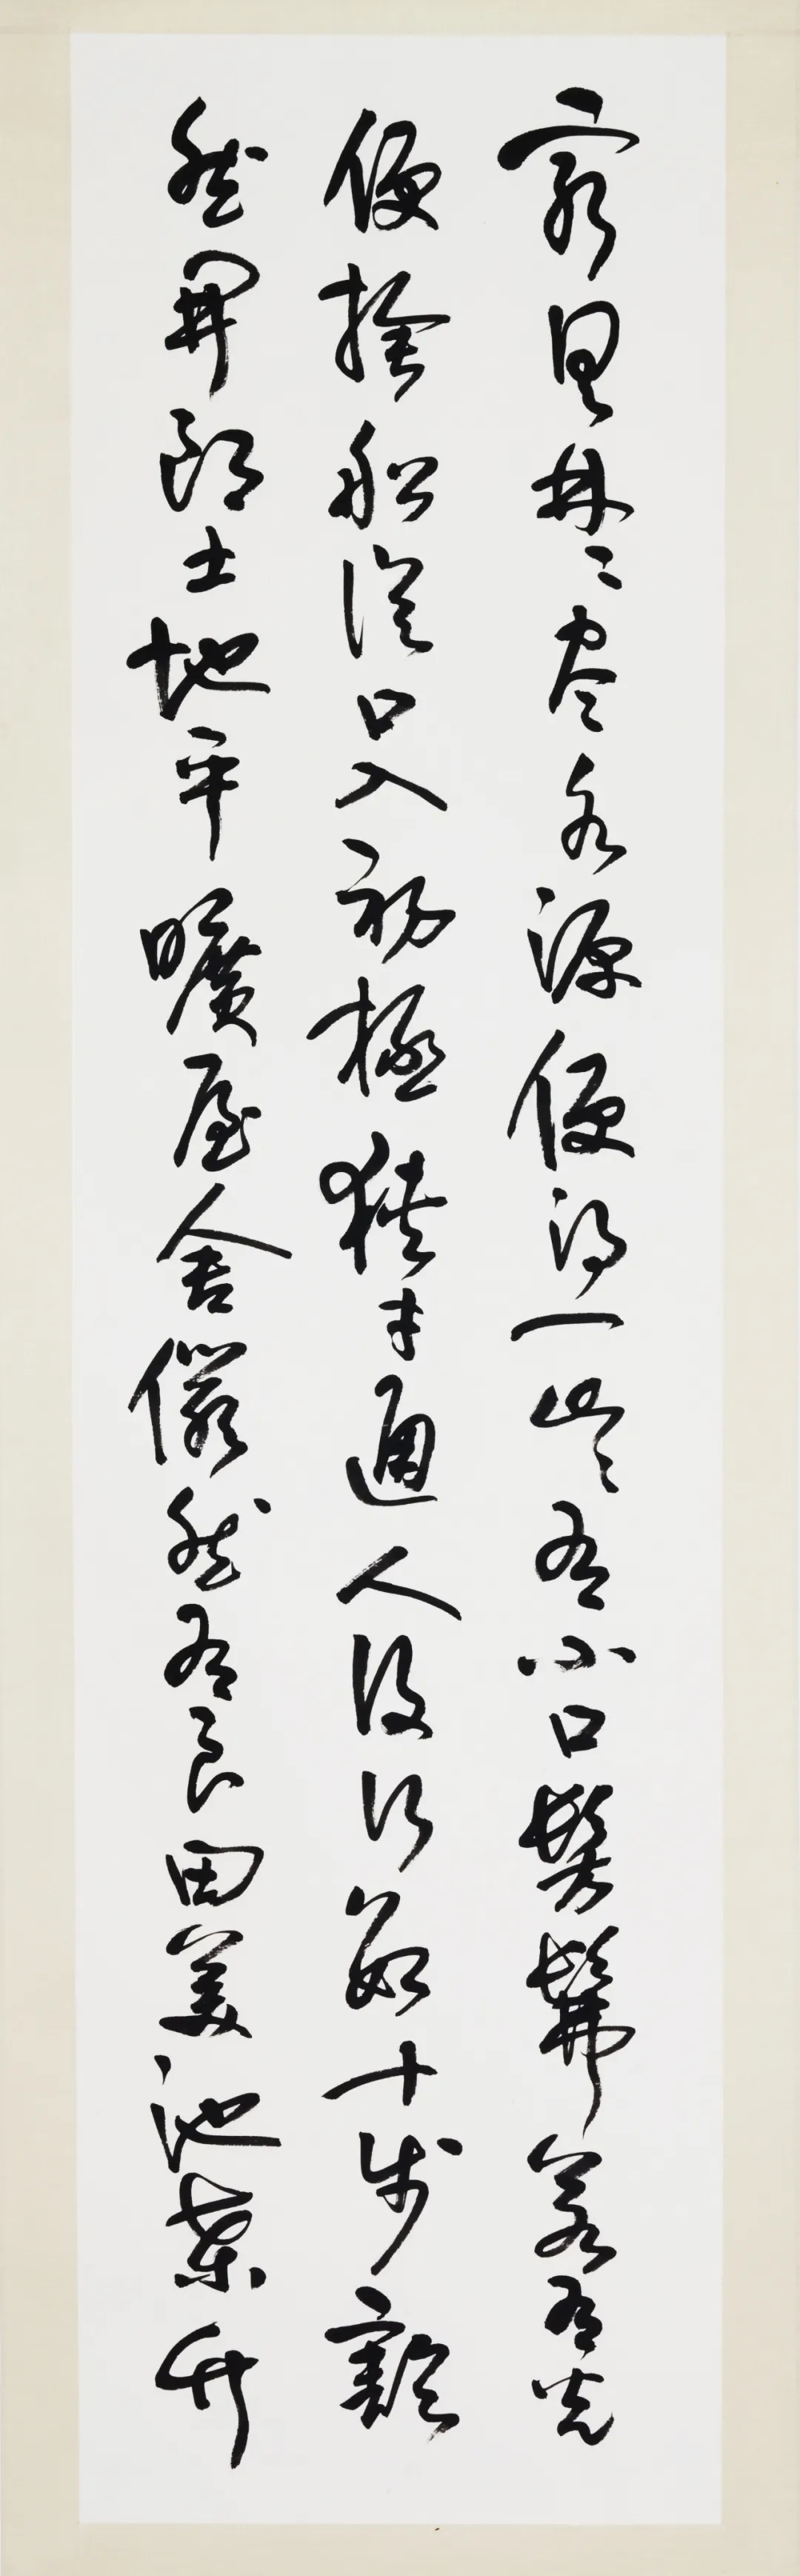 窮其林〻盡水源便得一山〻有小口髣髴若有光
便捨船從口入初極狹才通人復行數十步豁
然開朗土地平曠屋舍儼然有良田美池桑竹